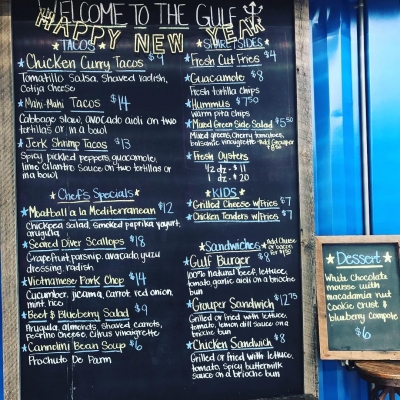 WELCOME TO THE GULF
HAPPY NEW YEAR
TACOS
Chicken Curry Tacos $9
Tomatillo Salsa, Shaved radish,
Cotija cheese
Mahi-Mahi Tacos $14
Cabbage slaw, avocado aioli on two
tortillas or in a bowl
Jerk Shrimp Tacos $13
Spicy pickled peppers, guacamole,
lime cilantro sauce on two tortillas or
in a bowl
Chef's Specials
Meatball a la Mediterranean $12
Chickpea salad, smoked paprika yogurt,
arugula
Seared Diver Scallops $18
Grapefruit parsnip, avocado, yuzu
dressing, radish
Vietnamese Pork Chop $14
Cucumber, jicama, carrot, red onion,
mint, rice
Beet & Blueberry Salad $9
Arugula, almonds, shaved carrots,
pecorino cheese, citrus vinaigrette
Cannelini Bean Soup $6
Prochuto De Parm
SHARE SIDES
Fresh Cut Fries $4
Guacamole $8
Fresh tortilla chips
Hummus $7.50
Warm pita chips
Mixed Green Side Salad $5.50
Mixed greens, cherry tomatoes,
balsamic vinaigrette Add Grouper
Fresh Oysters
1/2 dz - $11
1 dz - $20
KIDS
Grilled Cheese w/Fries $7
Chicken Tenders w/Fries $7
Sandwiches
Add Cheese
or bacon
Gulf Burger $8
100% natural beef, lettuce,
tomato, garlic aioli on a brioche
bun
Grouper Sandwich $12.75
Grilled or fried with lettuce,
tomato, lemon dill sauce on a
brioche bun
Chicken Sandwich $8
Grilled or fried with lettuce,
tomato, spicy buttermilk
sauce on a brioche bun
Dessert
White Chocolate
mousse with
macadamia nut
cookie crust &
blueberry compote
$6